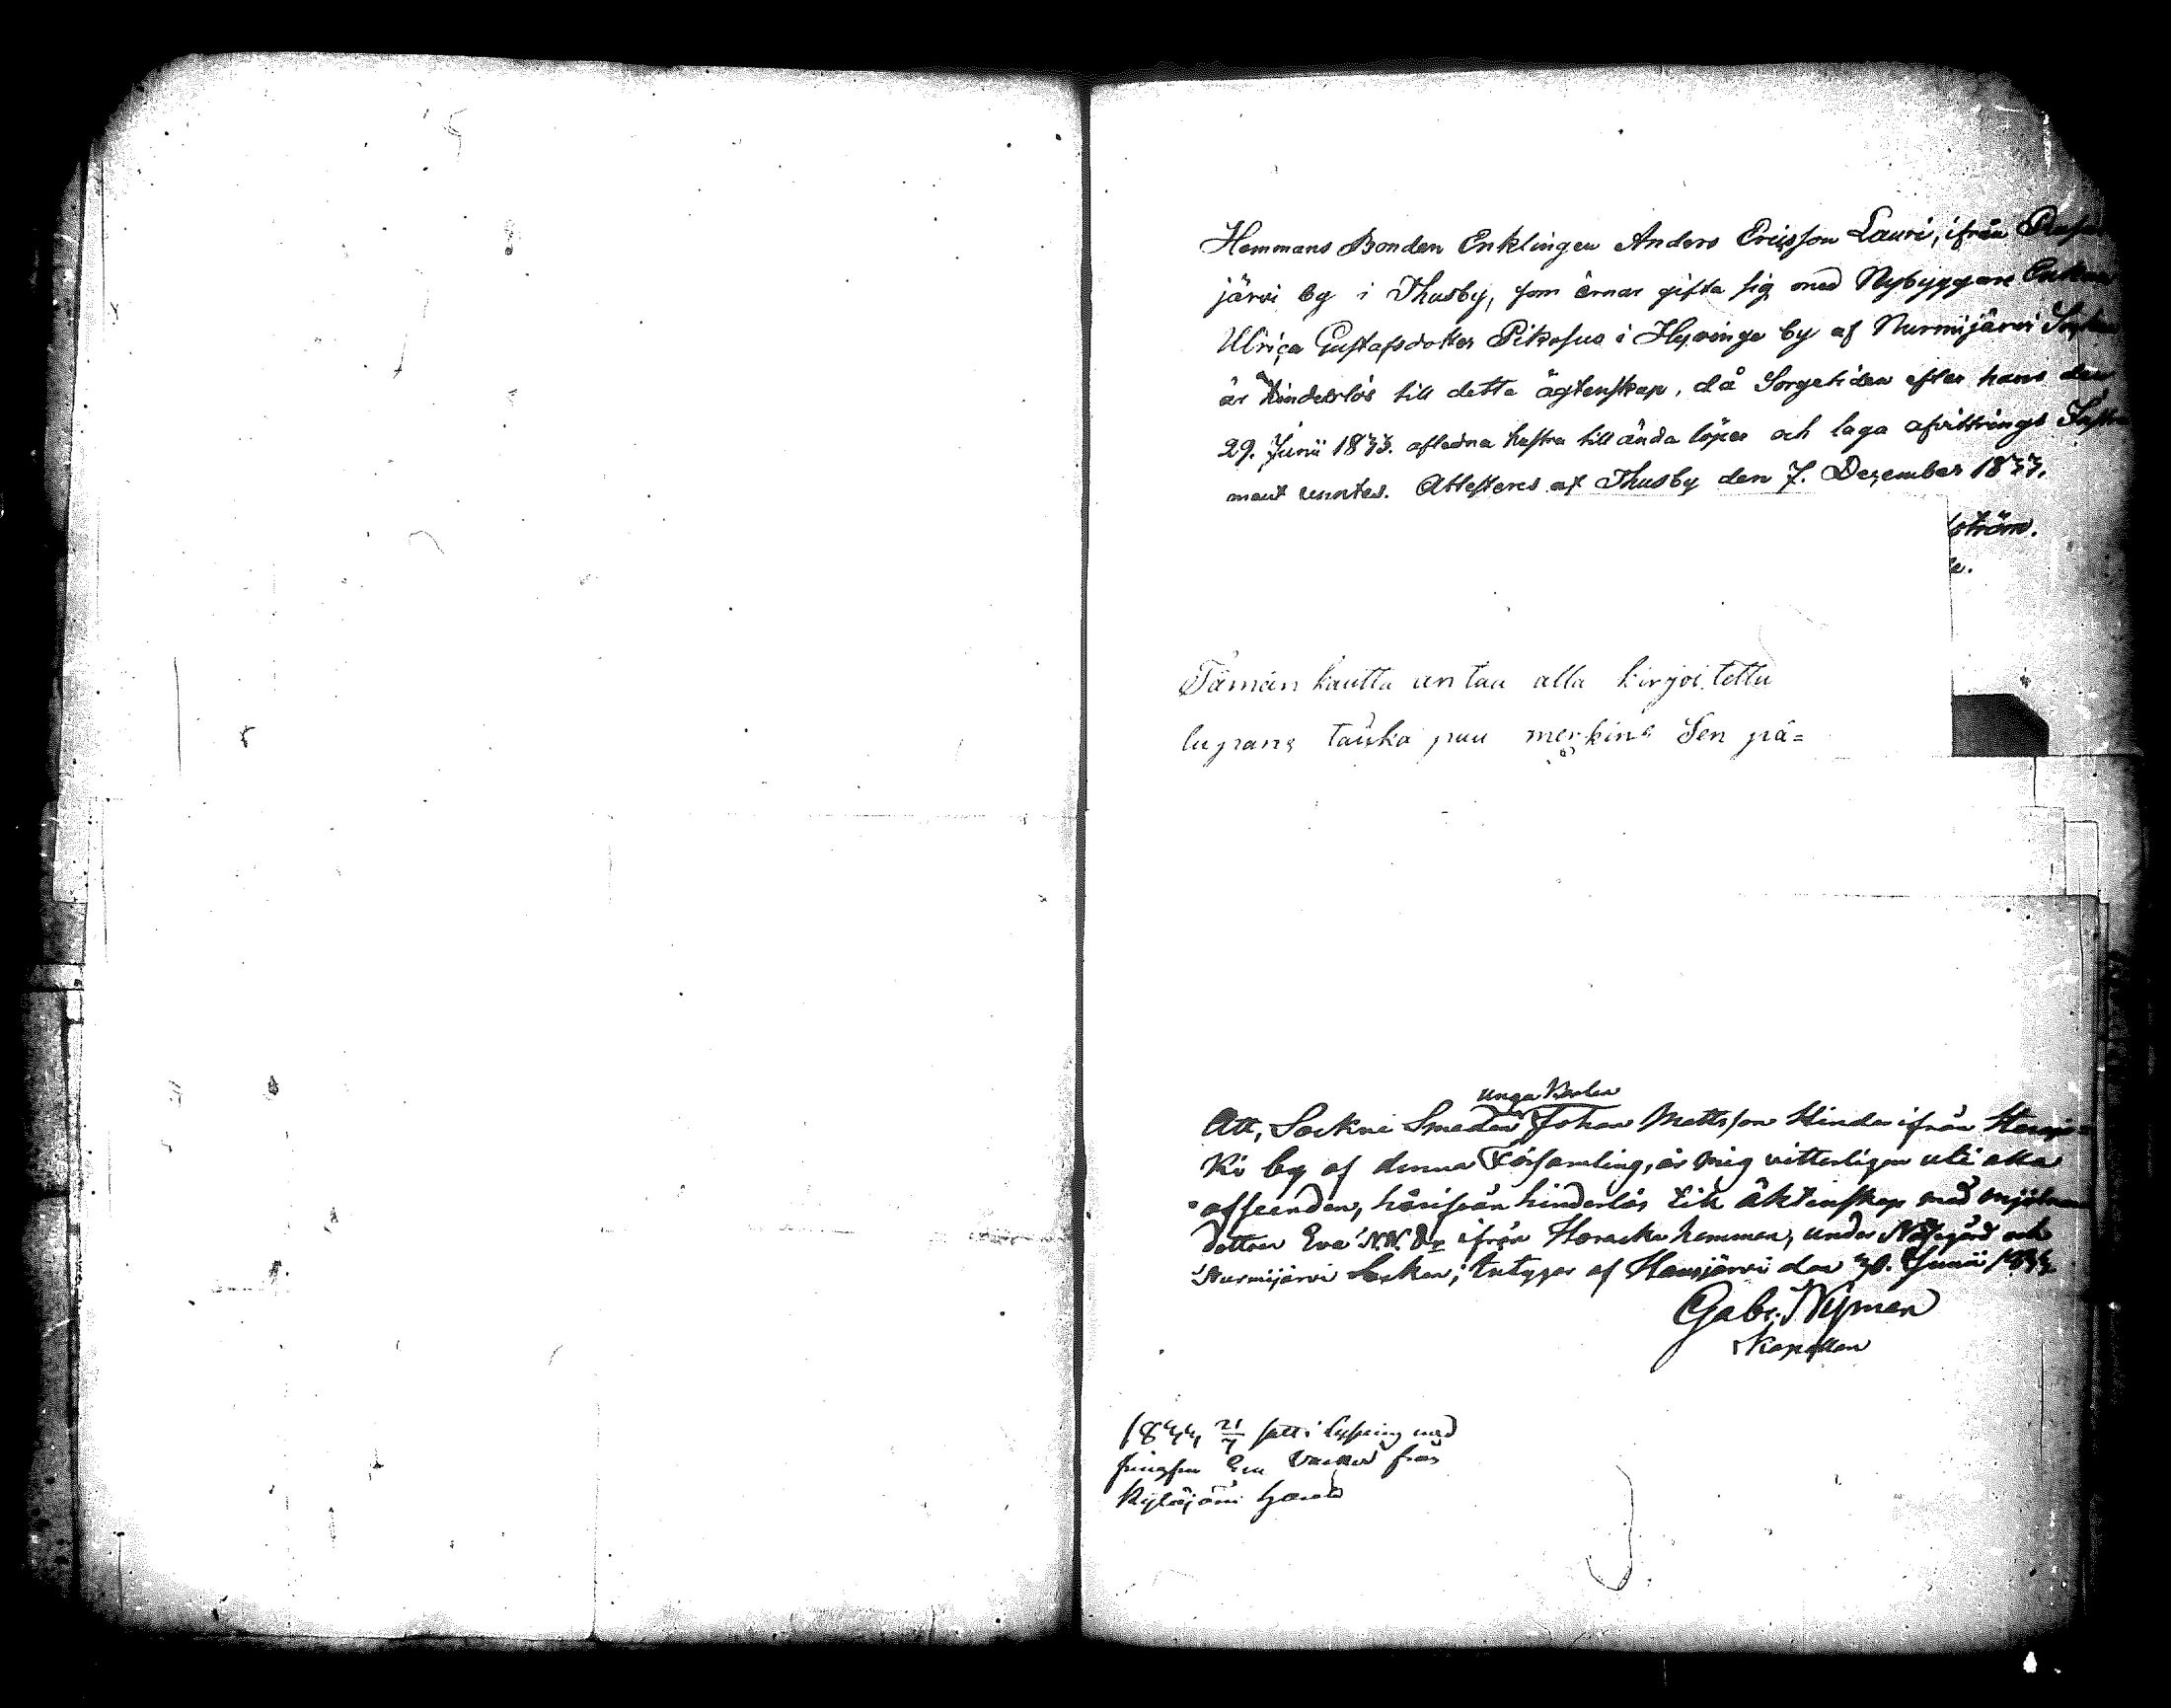 Hemmans Bonden Enklingen Anders Ericsson Lauri, ifrån
järvi by i Thusby, som ärnar gifta sig med Nybyggare Enkan
Ulrica Gustafsdotter Pikasus i Hyvinge by af Nurmijärvi
är hinderlös till detta ägtenskap, då Sorgetiden efter hans den
29. Junii 1833. aflidna hustru till ända löper och laga afvittrings
ment Attesteres af Thusby den 7. December 1833.
ström.
Tämän kautta antaa alla kirjoitettu
lupans puu merkina Sen pä=
unga Karlen
Att, Sockne Smeden Johan Mattsson Hinder ifrån
ki by af denna Församling, är mig vitterligen uti alla
afseenden, härifrån hinderlös till äktenskap med
dottren Eva N.N. ifrån hemman, under och
Nurmijärvi Socken; intygar af Hausjärvi den 30. Junii 1833
Gabr. Nyman
Kapellan
1833 21/7 satt i lysning med
från